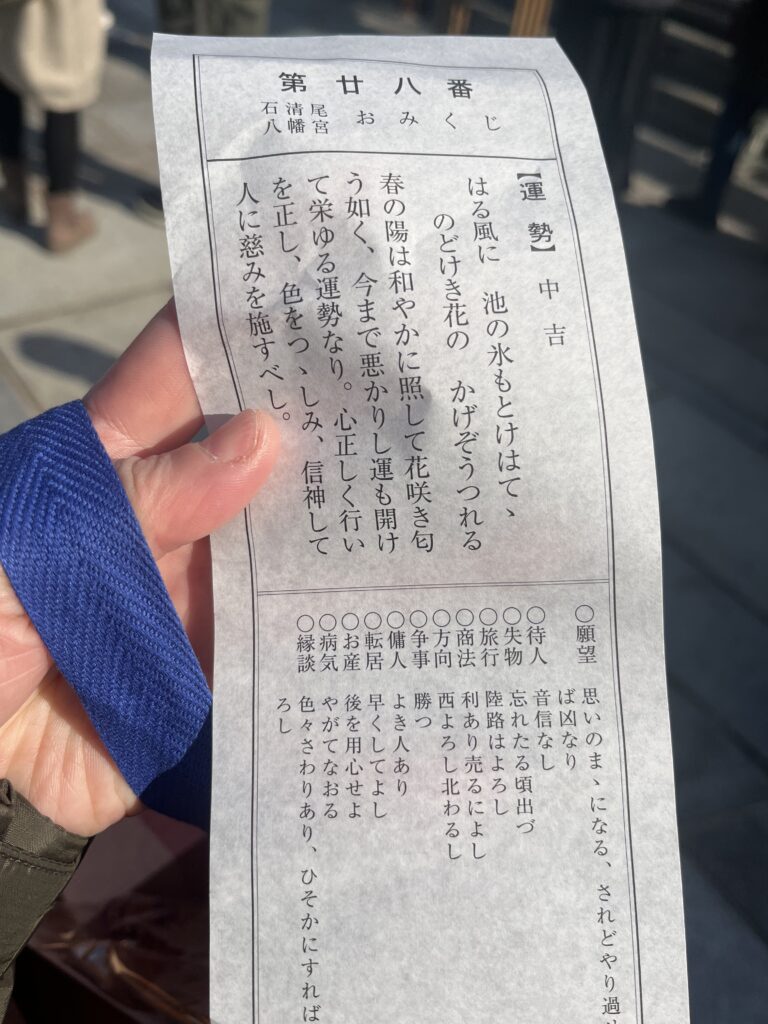 第廿八番
石清尾八幡宮 おみくじ
【運勢】 中吉
はる風に 池の氷もとけはて、
のどけき花の かげぞうつれる
春の陽は和やかに照して花咲き匂
う如く、今まで悪かりし運も開け
て栄ゆる運勢なり。心正しく行い
を正し、色をつゝしみ、信神して
人に慈みを施すべし。
○願望 思いのまゝになる、されどやり過
ば凶なり
○待人 音信なし
○失物 忘れたる頃出づ
○旅行 陸路はよろし
○商法 利あり売るによし
○方向 西よろし北わるし
○争事 勝つ
○傭人 よき人あり
○転居 早くしてよし
○お産 後を用心せよ
○病気 やがてなおる
○縁談 色々さわりあり、ひそかにすれば
ろし